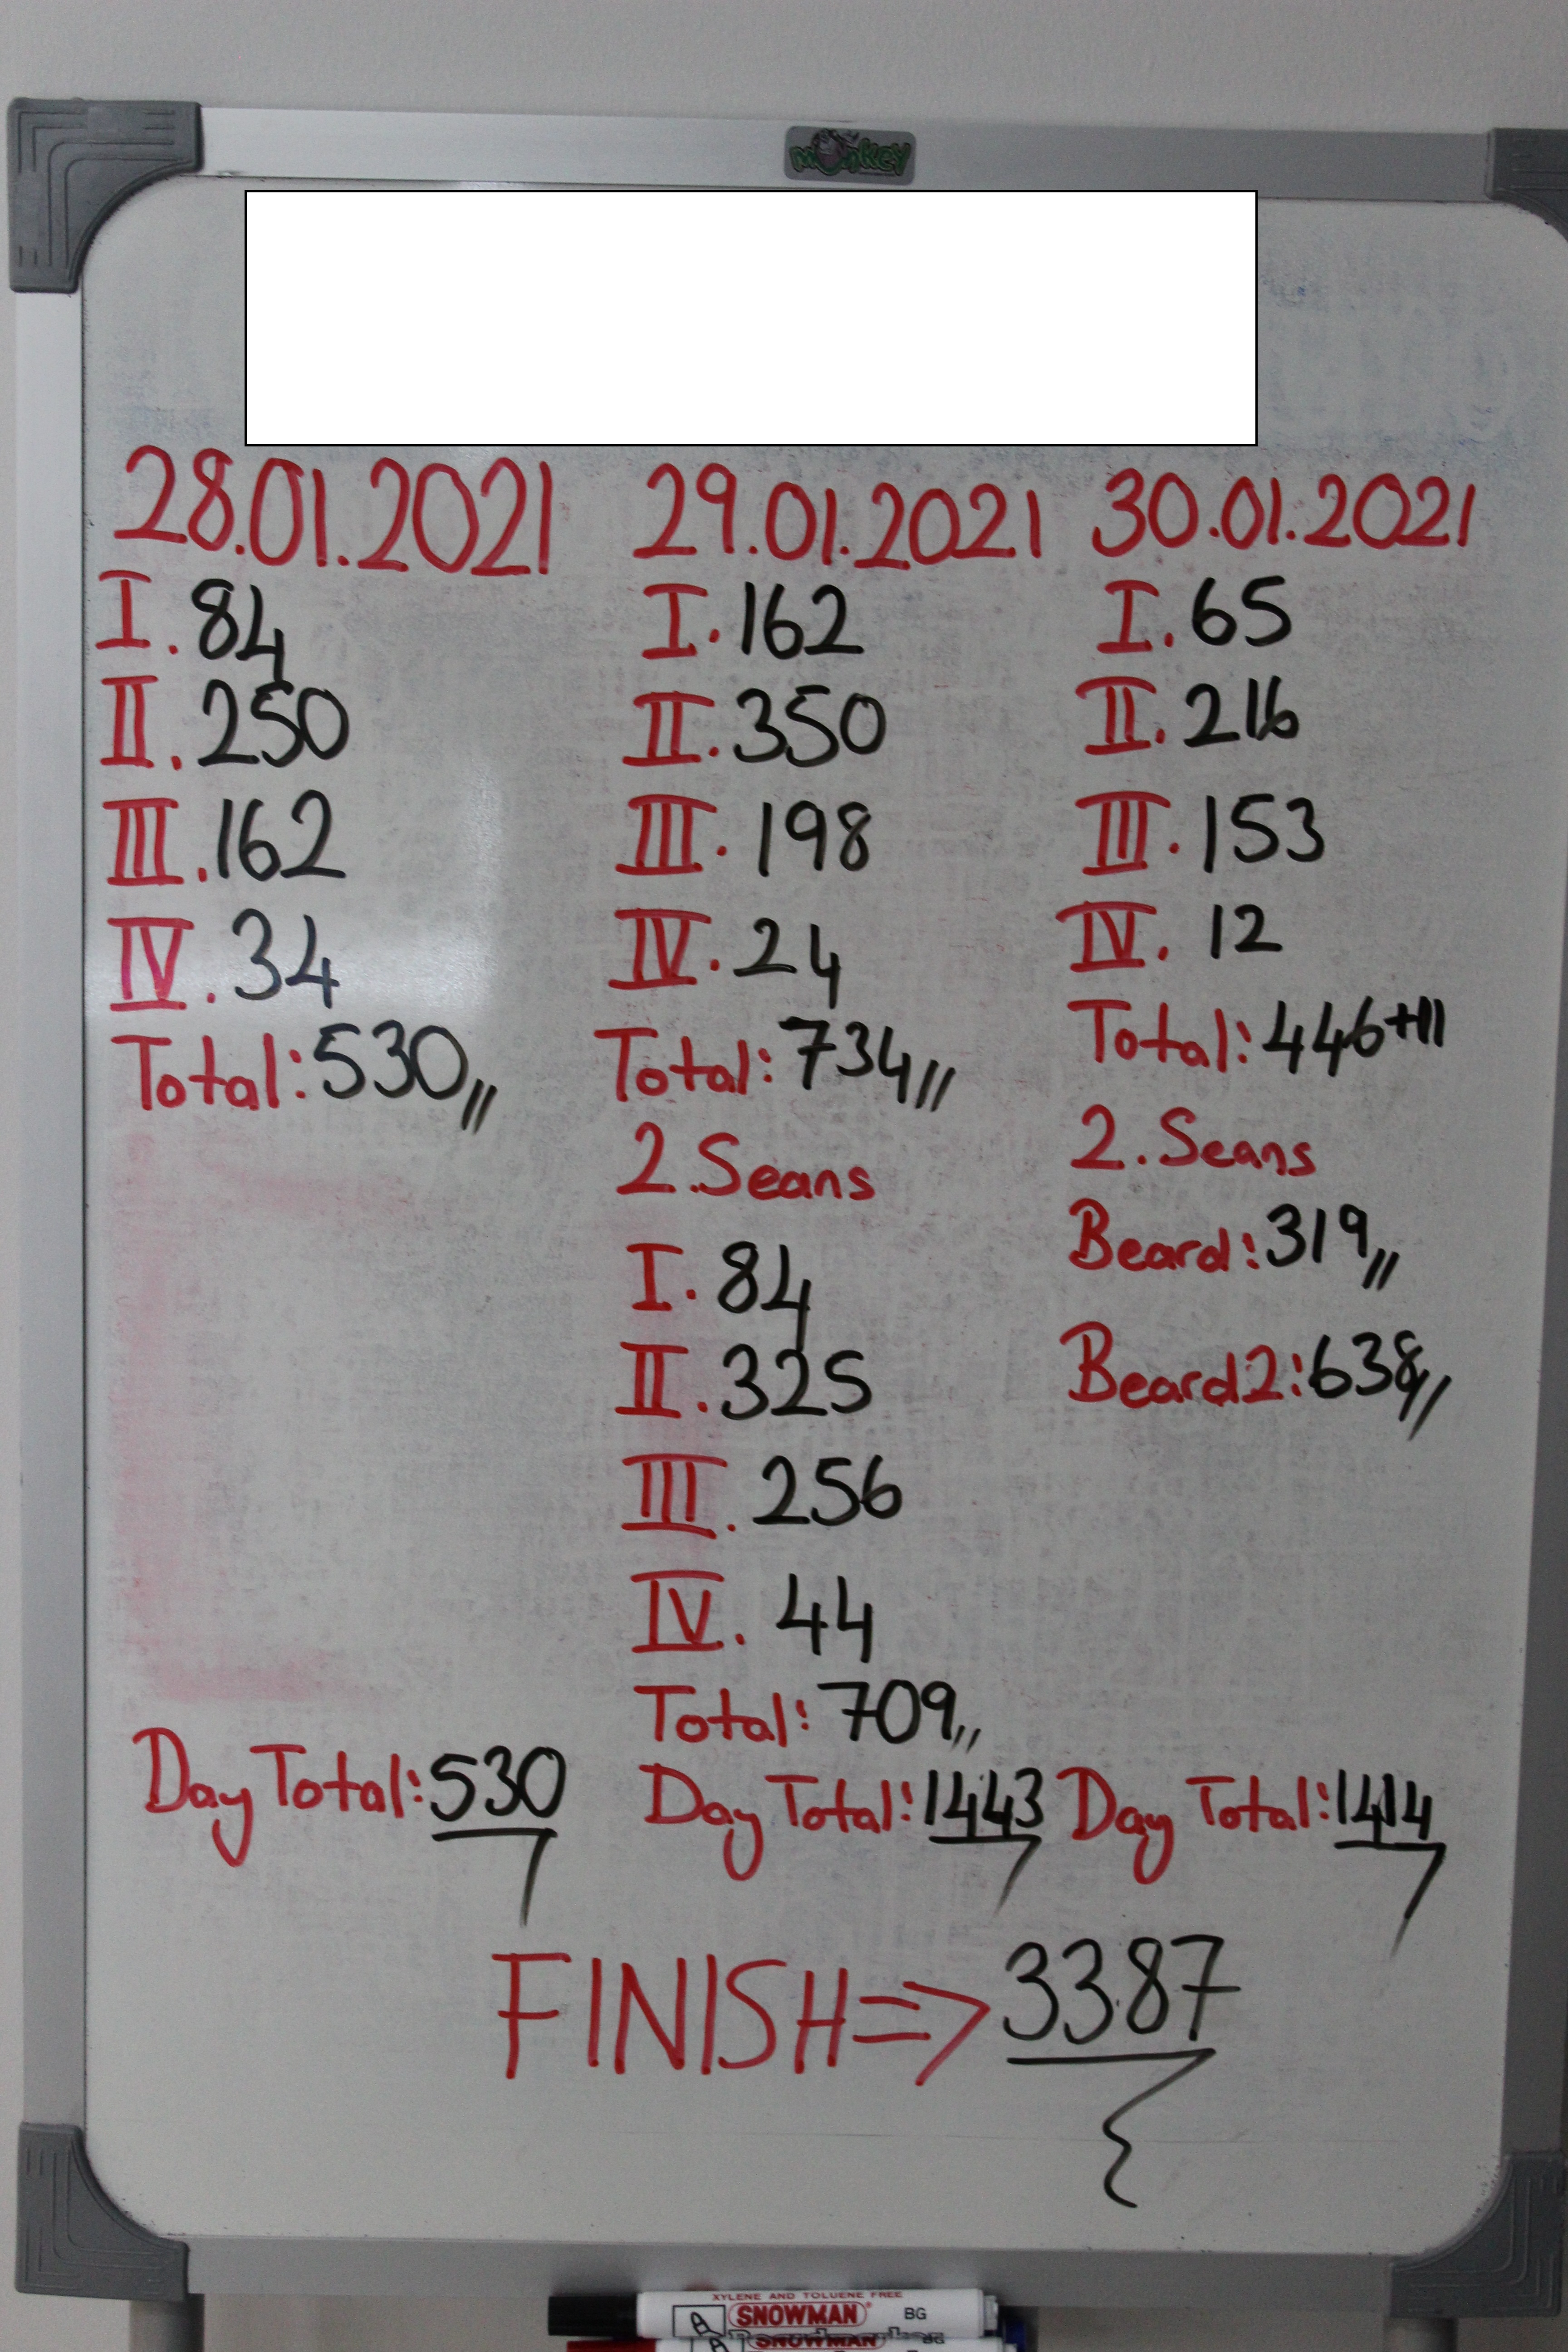 monkey
28.01.2021
I. 84
II. 250
III. 162
IV. 34
Total: 530,,
Day Total: 530
29.01.2021
I. 162
II. 350
III. 198
IV. 24
Total: 734,,
2. Seans
I. 84
II. 325
III. 256
IV. 44
Total: 709,,
Day Total: 1443
30.01.2021
I. 65
II. 216
III. 153
IV. 12
Total: 446+11
2. Seans
Beard: 319,,
Beard2: 638,,
Day Total: 1414
FINISH => 3387
XYLENE AND TOLUENE FREE
SNOWMAN BG
SNOWMAN